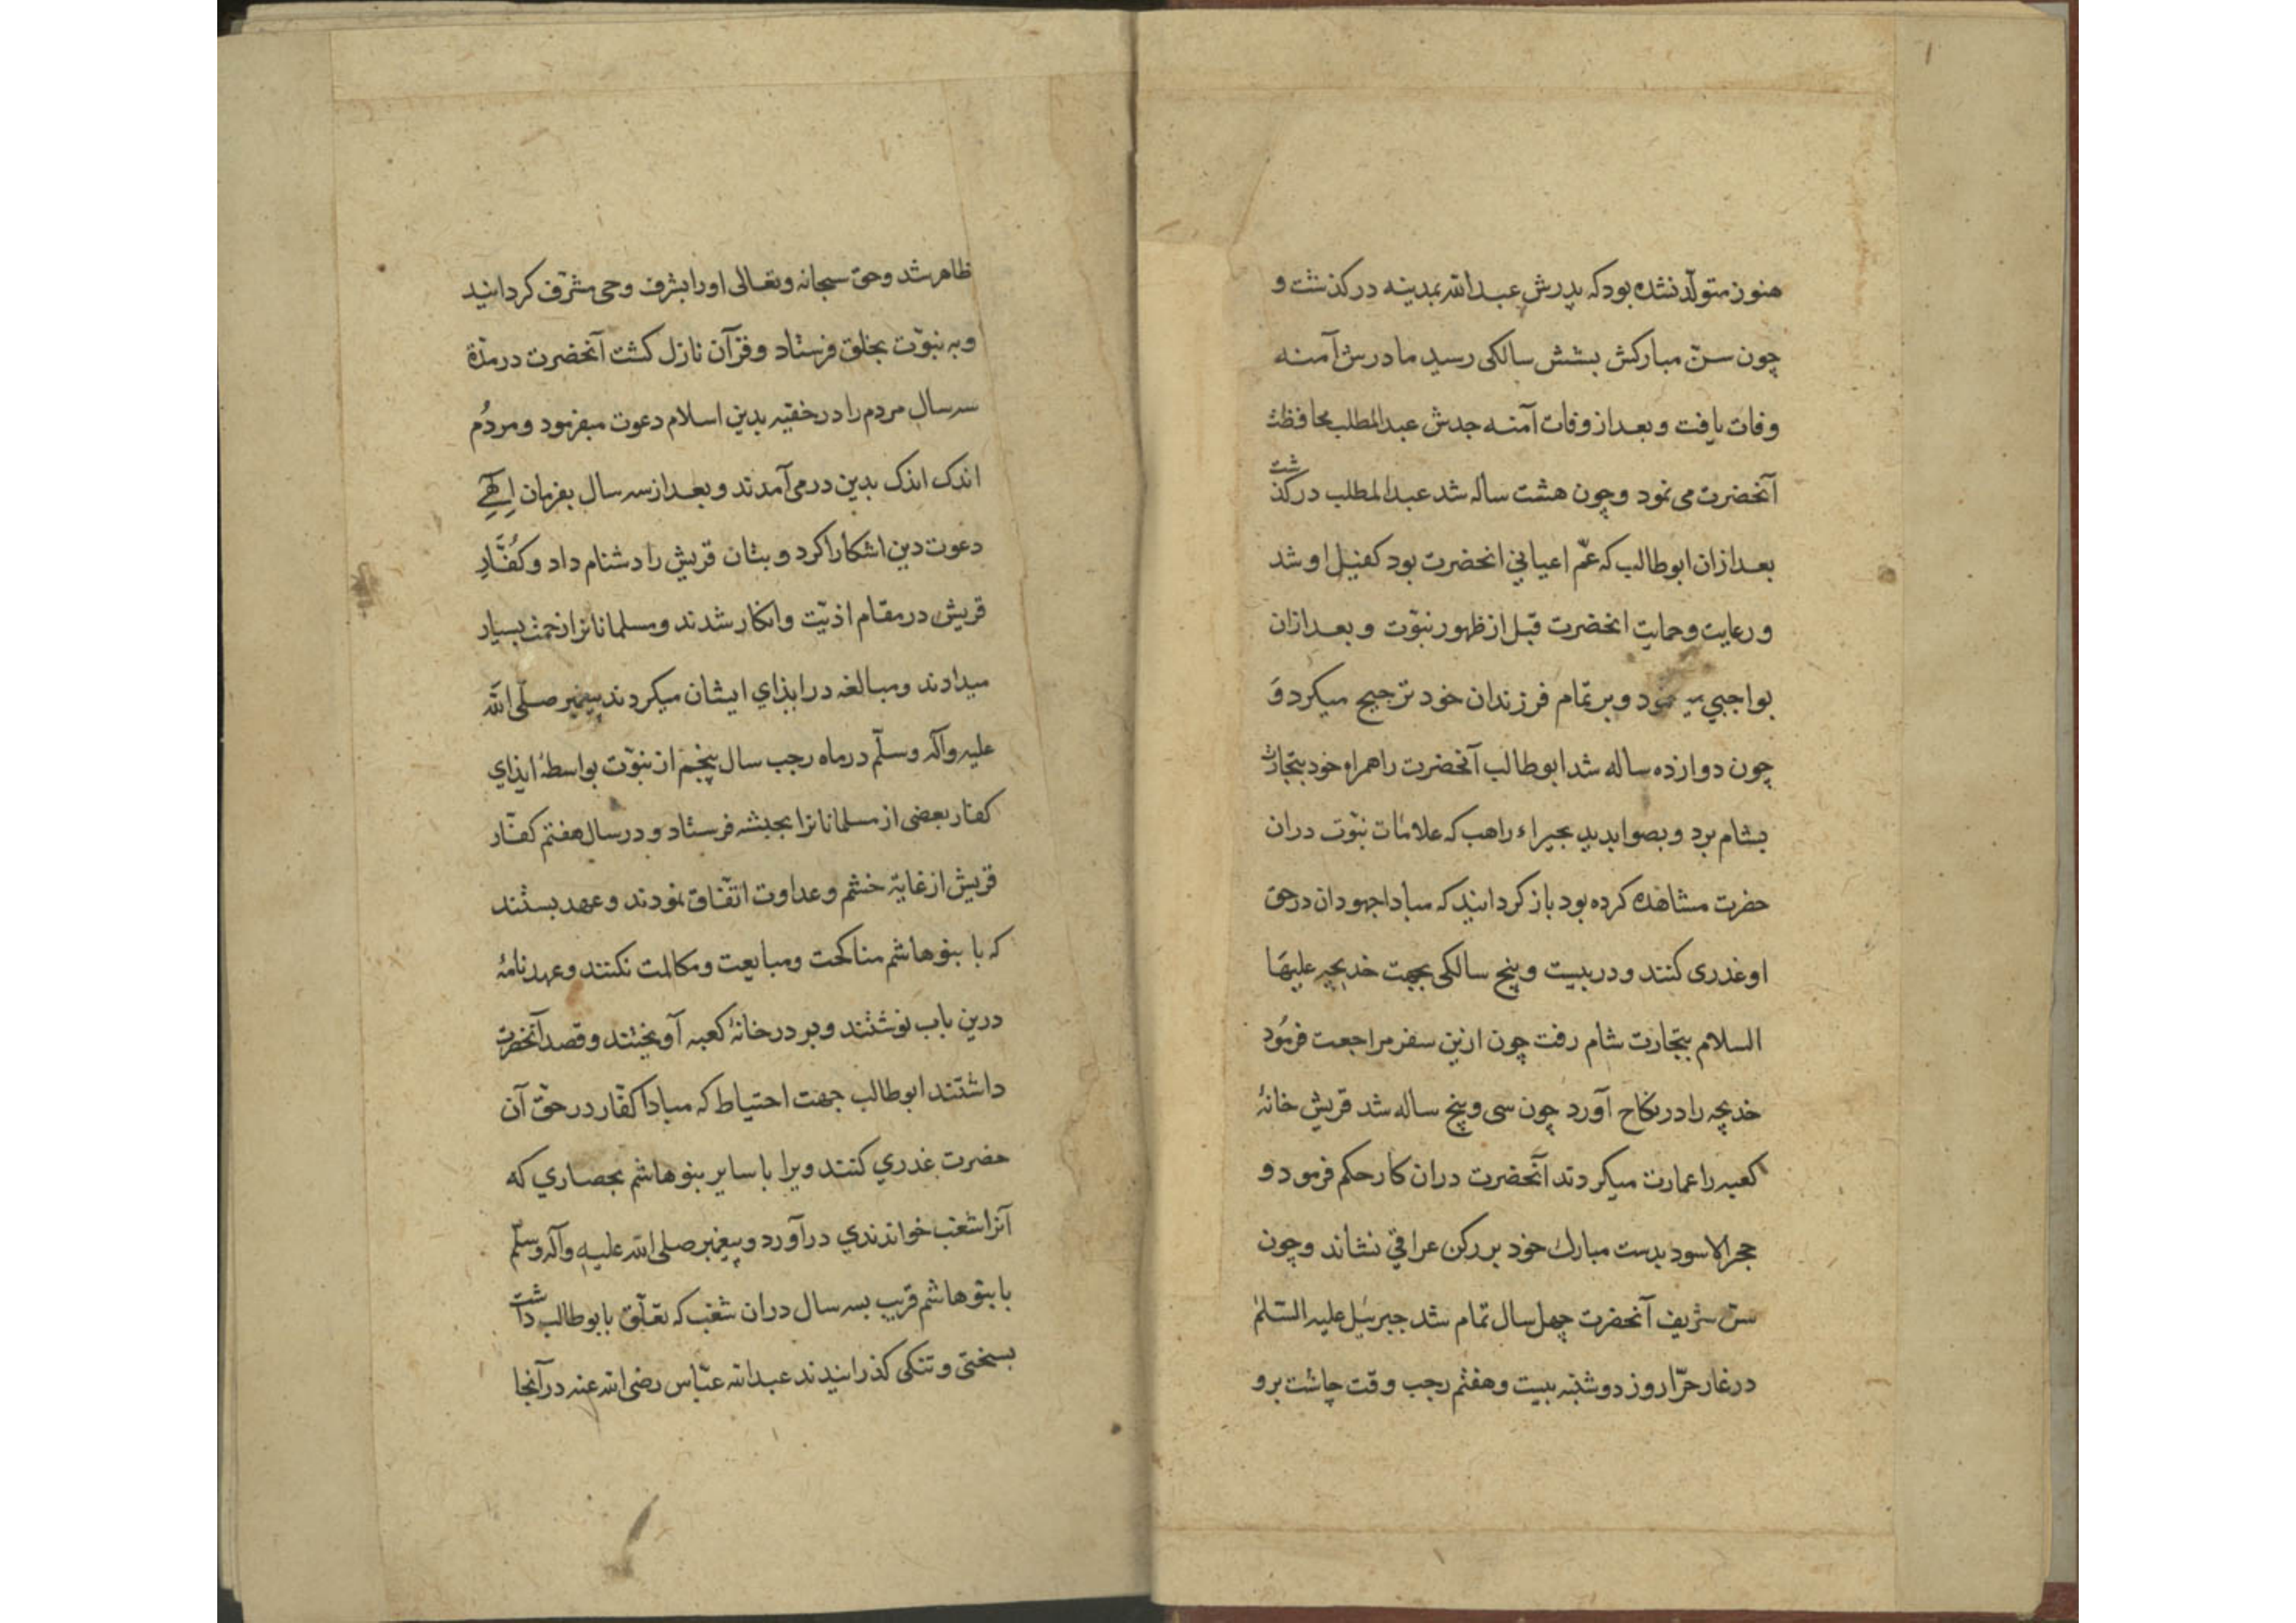 هنوز متولّد نشده بود که پدرش عبدالله بمدینه درکذشت و
چون سنّ مبارکش بشش سالکی رسید مادرش آمنه
وفات یافت و بعد از وفات آمنه جدش عبدالمطلب محافظت
آنحضرت می نمود و چون هشت ساله شد عبدالمطلب درکذشت
بعد ازان ابوطالب که عمّ اعیانی انحضرت بود کفیل او شد
و رعایت و حمایت انحضرت قبل از ظهور نبوّت و بعد ازان
بواجبی و بر تمام فرزندان خود ترجیح میکرد و
چون دوازده ساله شد ابوطالب آنحضرت را همراه خود بتجارت
بشام برد و بصوابدید بحیراء راهب که علامات نبوّت دران
حضرت مشاهده کرده بود باز کردانید که مبادا جهودان در حق
او غدری کنند و در بیست و پنج سالکی بجهت خدیجه علیها
السلام بتجارت شام رفت چون ازین سفر مراجعت فرمُود
خدیجه را در نکاح آورد چون سی و پنج ساله شد قریش خانهٔ
کعبه را عمارت میکردند آنحضرت دران کار حکم فرمود و
حجرالاسود بدست مبارک خود بر رکن عراقی نشاند و چون
سنّ شریف آنحضرت چهل سال تمام شد جبرئیل علیه السّلم
در غار حرّا روز دوشنبه بیست و هفتم رجب وقت چاشت برو
ظاهر شد و حق سبحانه و تعالی او را بشرف وحی مشرّف کردانید
و به نبوّت بخلق فرستاد و قرآن نازل کشت آنحضرت در مدّة
سه سال مردم را در خفیه بدین اسلام دعوت میفرمود و مردُم
اندک اندک بدین درمی آمدند و بعد از سه سال بفرمان اِلٓهی
دعوت دین اشکارا کرد و بتان قریش را دشنام داد و کُفّارِ
قریش در مقام اذیّت و انکار شدند و مسلمانانرا زحمت بسیار
میدادند و مبالغه در ایذای ایشان میکردند پیغمبر صلّی الله
علیه وآله وسلّم در ماه رجب سال پنجم از نبوّت بواسطهٔ ایذای
کفار بعضی از مسلمانانرا بحبشه فرستاد و در سال هفتم کفّار
قریش از غایة خشم و عداوت اتّفاق نمودند و عهد بستند
که با بنوهاشم مناکحت و مبایعت و مکالمت نکنند و عهدنامهٔ
درین باب نوشتند و بر در خانهٔ کعبه آویختند و قصد آنحضرت
داشتند ابوطالب جهت احتیاط که مبادا کفّار در حقّ آن
حضرت غدری کنند ویرا با سایر بنوهاشم بحصاری که
آنرا شعب خواندندی درآورد و پیغمبر صلی الله علیه وآله وسلّم
با بنوهاشم قریب بسه سال دران شعب که تعلّق بابوطالب داشت
بسختی و تنکی کذرانیدند عبدالله عبّاس رضی الله عنه درآنجا